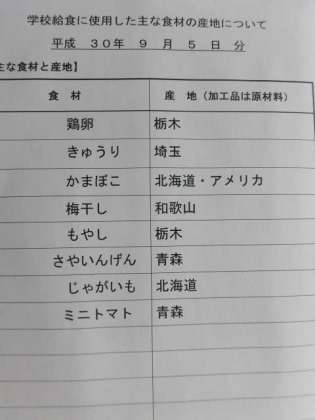 学校給食に使用した主な食材の産地について
平成 30年 9 月 5 日 分
主な食材と産地】
食 材 産 地（加工品は原材料）
鶏卵 栃木
きゅうり 埼玉
かまぼこ 北海道・アメリカ
梅干し 和歌山
もやし 栃木
さやいんげん 青森
じゃがいも 北海道
ミニトマト 青森